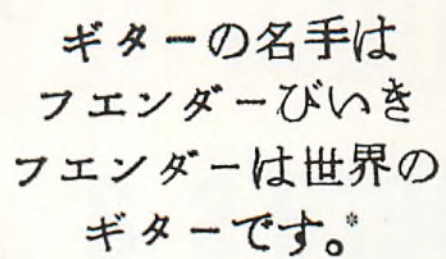 ギターの名手は
フエンダーびいき
フエンダーは世界の
ギターです。*